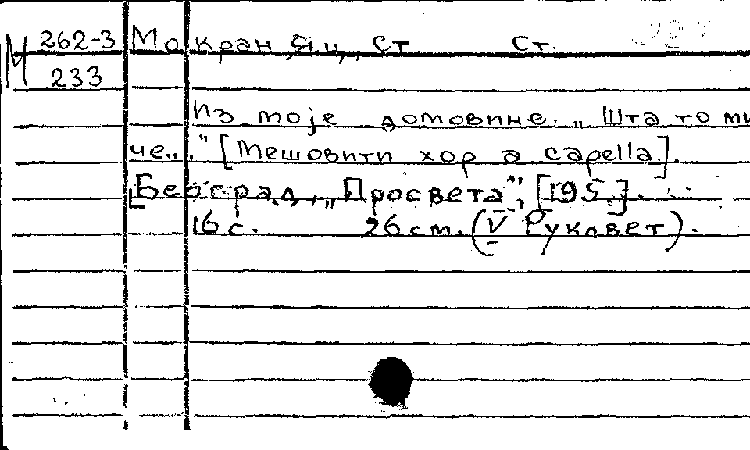 М 262-3 Мокрањац, Ст Ст.
233
Из моје домовине. „Шта то ми
че..." [Мешовити хор a capella].
[Београд], „Просвета", [195.].
16 с. 26 см. (V Руковет).